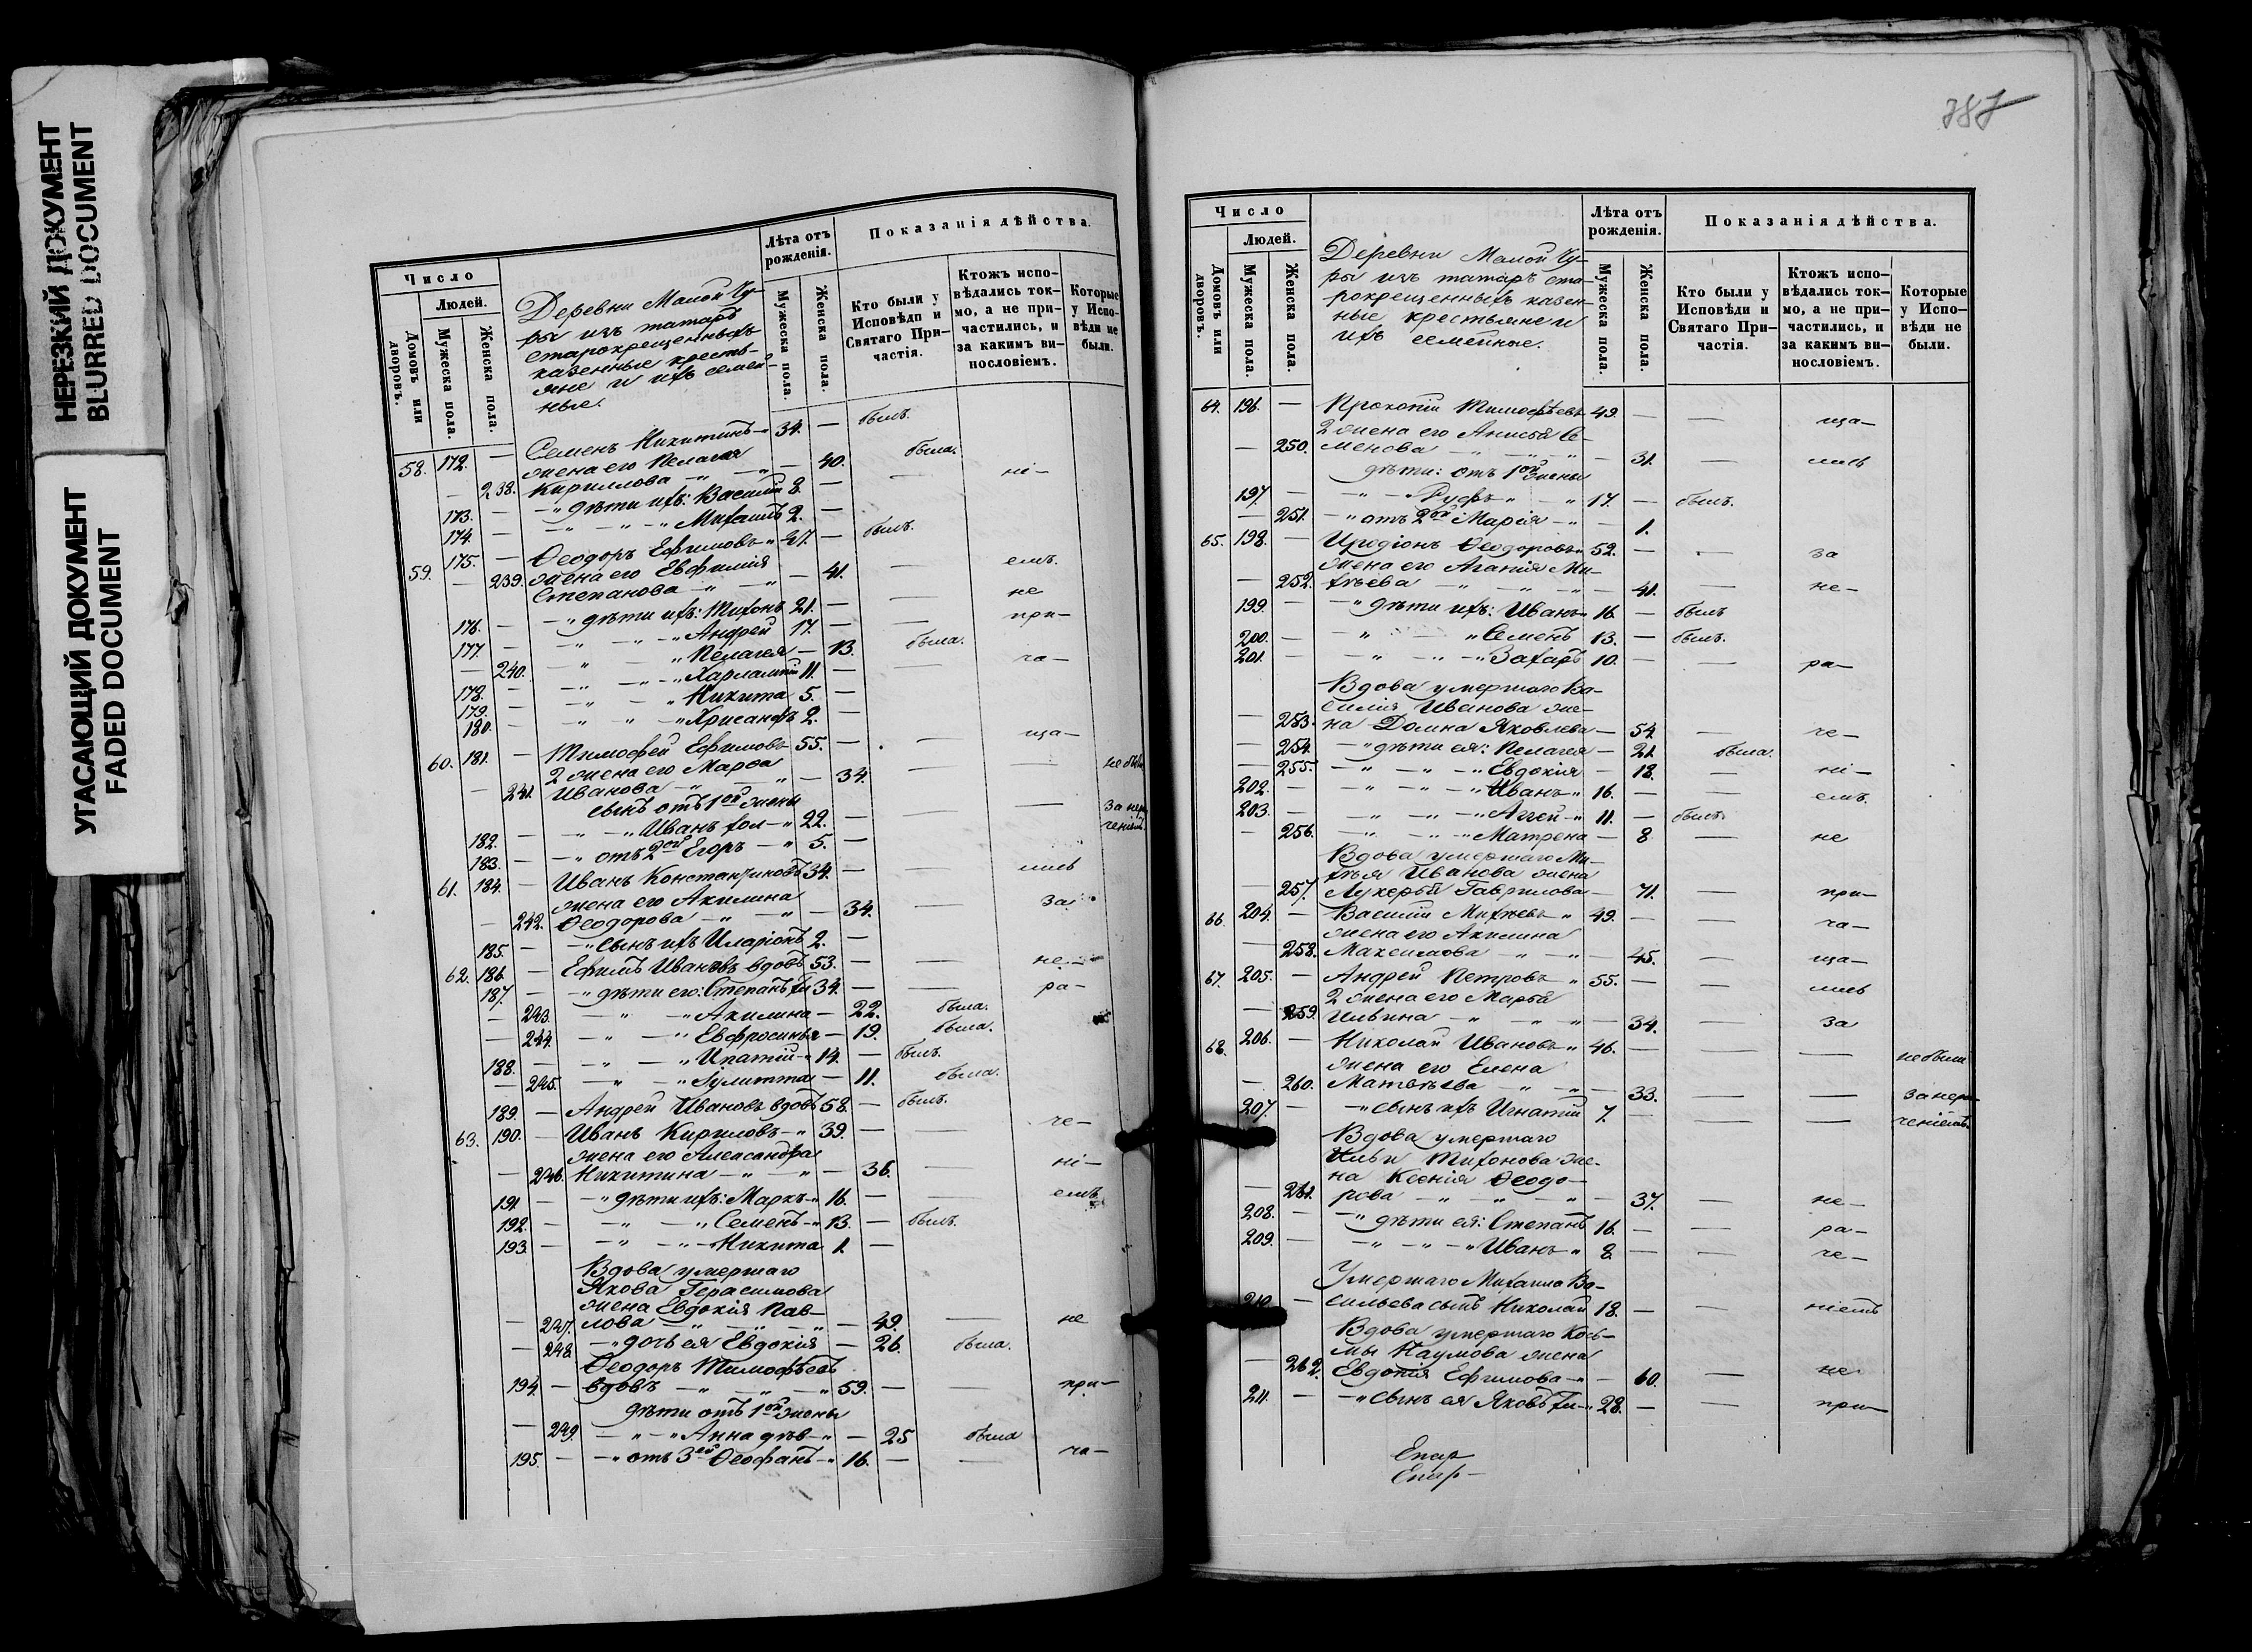 НЕРЕЗКИЙ ДОКУМЕНТ
BLURRED DOCUMENT
УГАСАЮЩИЙ ДОКУМЕНТ
FADED DOCUMENT
Число
Людей.
Домовъ или дворовъ.
Мужеска пола.
Женска пола.
Деревни Малой Чу-
ры изъ татаръ
старокрещенныхъ
казенные кресть-
яне и ихъ семей-
ные.
Лѣта отъ рожденія.
Мужеска пола.
Женска пола.
Показанія дѣйства.
Кто были у Исповѣди и Святаго При-частія.
Ктожъ испо-вѣдались ток-мо, а не при-частились, и за какимъ ви-нословіемъ.
Которые у Испо-вѣди не были.
58. 172. — Семенъ Никитинъ 34. — былъ.
жена его Пелагея
— 238. Кириллова — 40. была. ні-
173. — дѣти ихъ: Василій 8. —
174. — Михаилъ 2. —
59. 175. — Ѳеодоръ Ефимовъ 47. — былъ.
жена его Евфимія
— 239. Степанова — 41. — емъ.
176. — дѣти ихъ: Тихонъ 21. — — не
177. — Андрей 17. — — при-
— 240. Пелагея — 13. была.
178. — Харлампій 11. — ча-
179. — Никита 5. —
180. — Хрисанфъ 2. —
60. 181. — Тимофей Ефимовъ 55. — — ща-
2 жена его Марѳа
— 241. Иванова — 34. — — не были
сынъ отъ 1ой жены
182. — Иванъ хол- 22. — — за нера-
чені
183. — отъ 2ой Егоръ 5. —
61. 184. — Иванъ Константиновъ 34. — — лись
жена его Акилина
— 242. Ѳеодорова — 34. — за
185. — сынъ ихъ Иларіонъ 2. —
62. 186. — Ефимъ Ивановъ вдовъ 53. — — не-
187. — дѣти его: Степанъ хл 34. — — ра-
— 243. Акилина — 22. была.
— 244. Евфросинья — 19. была.
188. — Ипатій 14. — былъ.
— 245. Іулитта — 11. была.
189. — Андрей Ивановъ вдовъ 58. — былъ.
63. 190. — Иванъ Кириловъ 39. — — че-
жена его Александра
— 246. Никитина — 36. — ні-
191. — дѣти ихъ: Маркъ 16. — — емъ
192. — Семенъ 13. — былъ.
193. — Никита 1. —
Вдова умершаго
Якова Герасимова
жена Евдокія Пав-
— 247. лова — 49. — не
— 248. дочь ея Евдокія — 26. была.
Ѳеодоръ Тимофѣевъ
194. — вдовъ 59. — — при-
дѣти отъ 1ой жены
— 249. Анна дѣв- — 25 была
195. — отъ 3ей Ѳеофанъ 16. — — ча-
Число
Людей.
Домовъ или дворовъ.
Мужеска пола.
Женска пола.
Деревни Малой Чу-
ры изъ татаръ ста-
рокрещенныхъ казен-
ные крестьяне и
ихъ семейные.
Лѣта отъ рожденія.
Мужеска пола.
Женска пола.
Показанія дѣйства.
Кто были у Исповѣди и Святаго При-частія.
Ктожъ испо-вѣдались ток-мо, а не при-частились, и за какимъ ви-нословіемъ.
Которые у Испо-вѣди не были.
64. 196. — Прокопій Тимофѣевъ 49. — — ща-
2 жена его Анисія Се-
— 250. менова — 31. — лись
дѣти: отъ 1ой жены
197. — Руфъ 17. — былъ.
— 251. отъ 2ой Марія — 1.
65. 198. — Иродіонъ Ѳеодоровъ 52. — — за
жена его Агапія Ми-
— 252. хѣева — 41. — не-
199. — дѣти ихъ: Иванъ 16. — былъ
200. — Семенъ 13. — былъ.
201. — Захаръ 10. — — ра-
Вдова умершаго Ва-
силія Иванова же-
— 253. на Домна Яковлева — 54 — че-
— 254. дѣти ея: Пелагея — 21. была.
— 255. Евдокія — 18. — ні-
202. — Иванъ 16. — — емъ.
203. — Аггей 11. — былъ.
— 256. Матрена — 8 — не
Вдова умершаго Ми-
хѣя Иванова жена
— 257. Лукерья Гаврилова — 71. — при-
66 204. — Василій Михѣевъ 49. — — ча-
жена его Акилина
— 258. Максимова — 45. — ща-
67. 205. — Андрей Петровъ 55. — — лись
2 жена его Марѳа
— 259. Ильина — 34. — за
68. 206. — Николай Ивановъ 46. — — — не были
жена его Елена
— 260. Матвѣева — 33. — — за нера-
207. — сынъ ихъ Игнатій 7. — — — ченіемъ.
Вдова умершаго
Ильи Тихонова же-
на Ксенія Ѳеодо-
— 261. рова — 37. — не-
208. — дѣти ея: Степанъ 16. — — ра-
209. — Иванъ 8. — — че-
Умершаго Михаила Ва-
210. — сильева сынъ Николай 18. — — ніемъ
Вдова умершаго Кось-
мы Наумова жена
— 262. Евдокія Ефимова — 60. — не
211. — сынъ ея Яковъ 28. — — при-